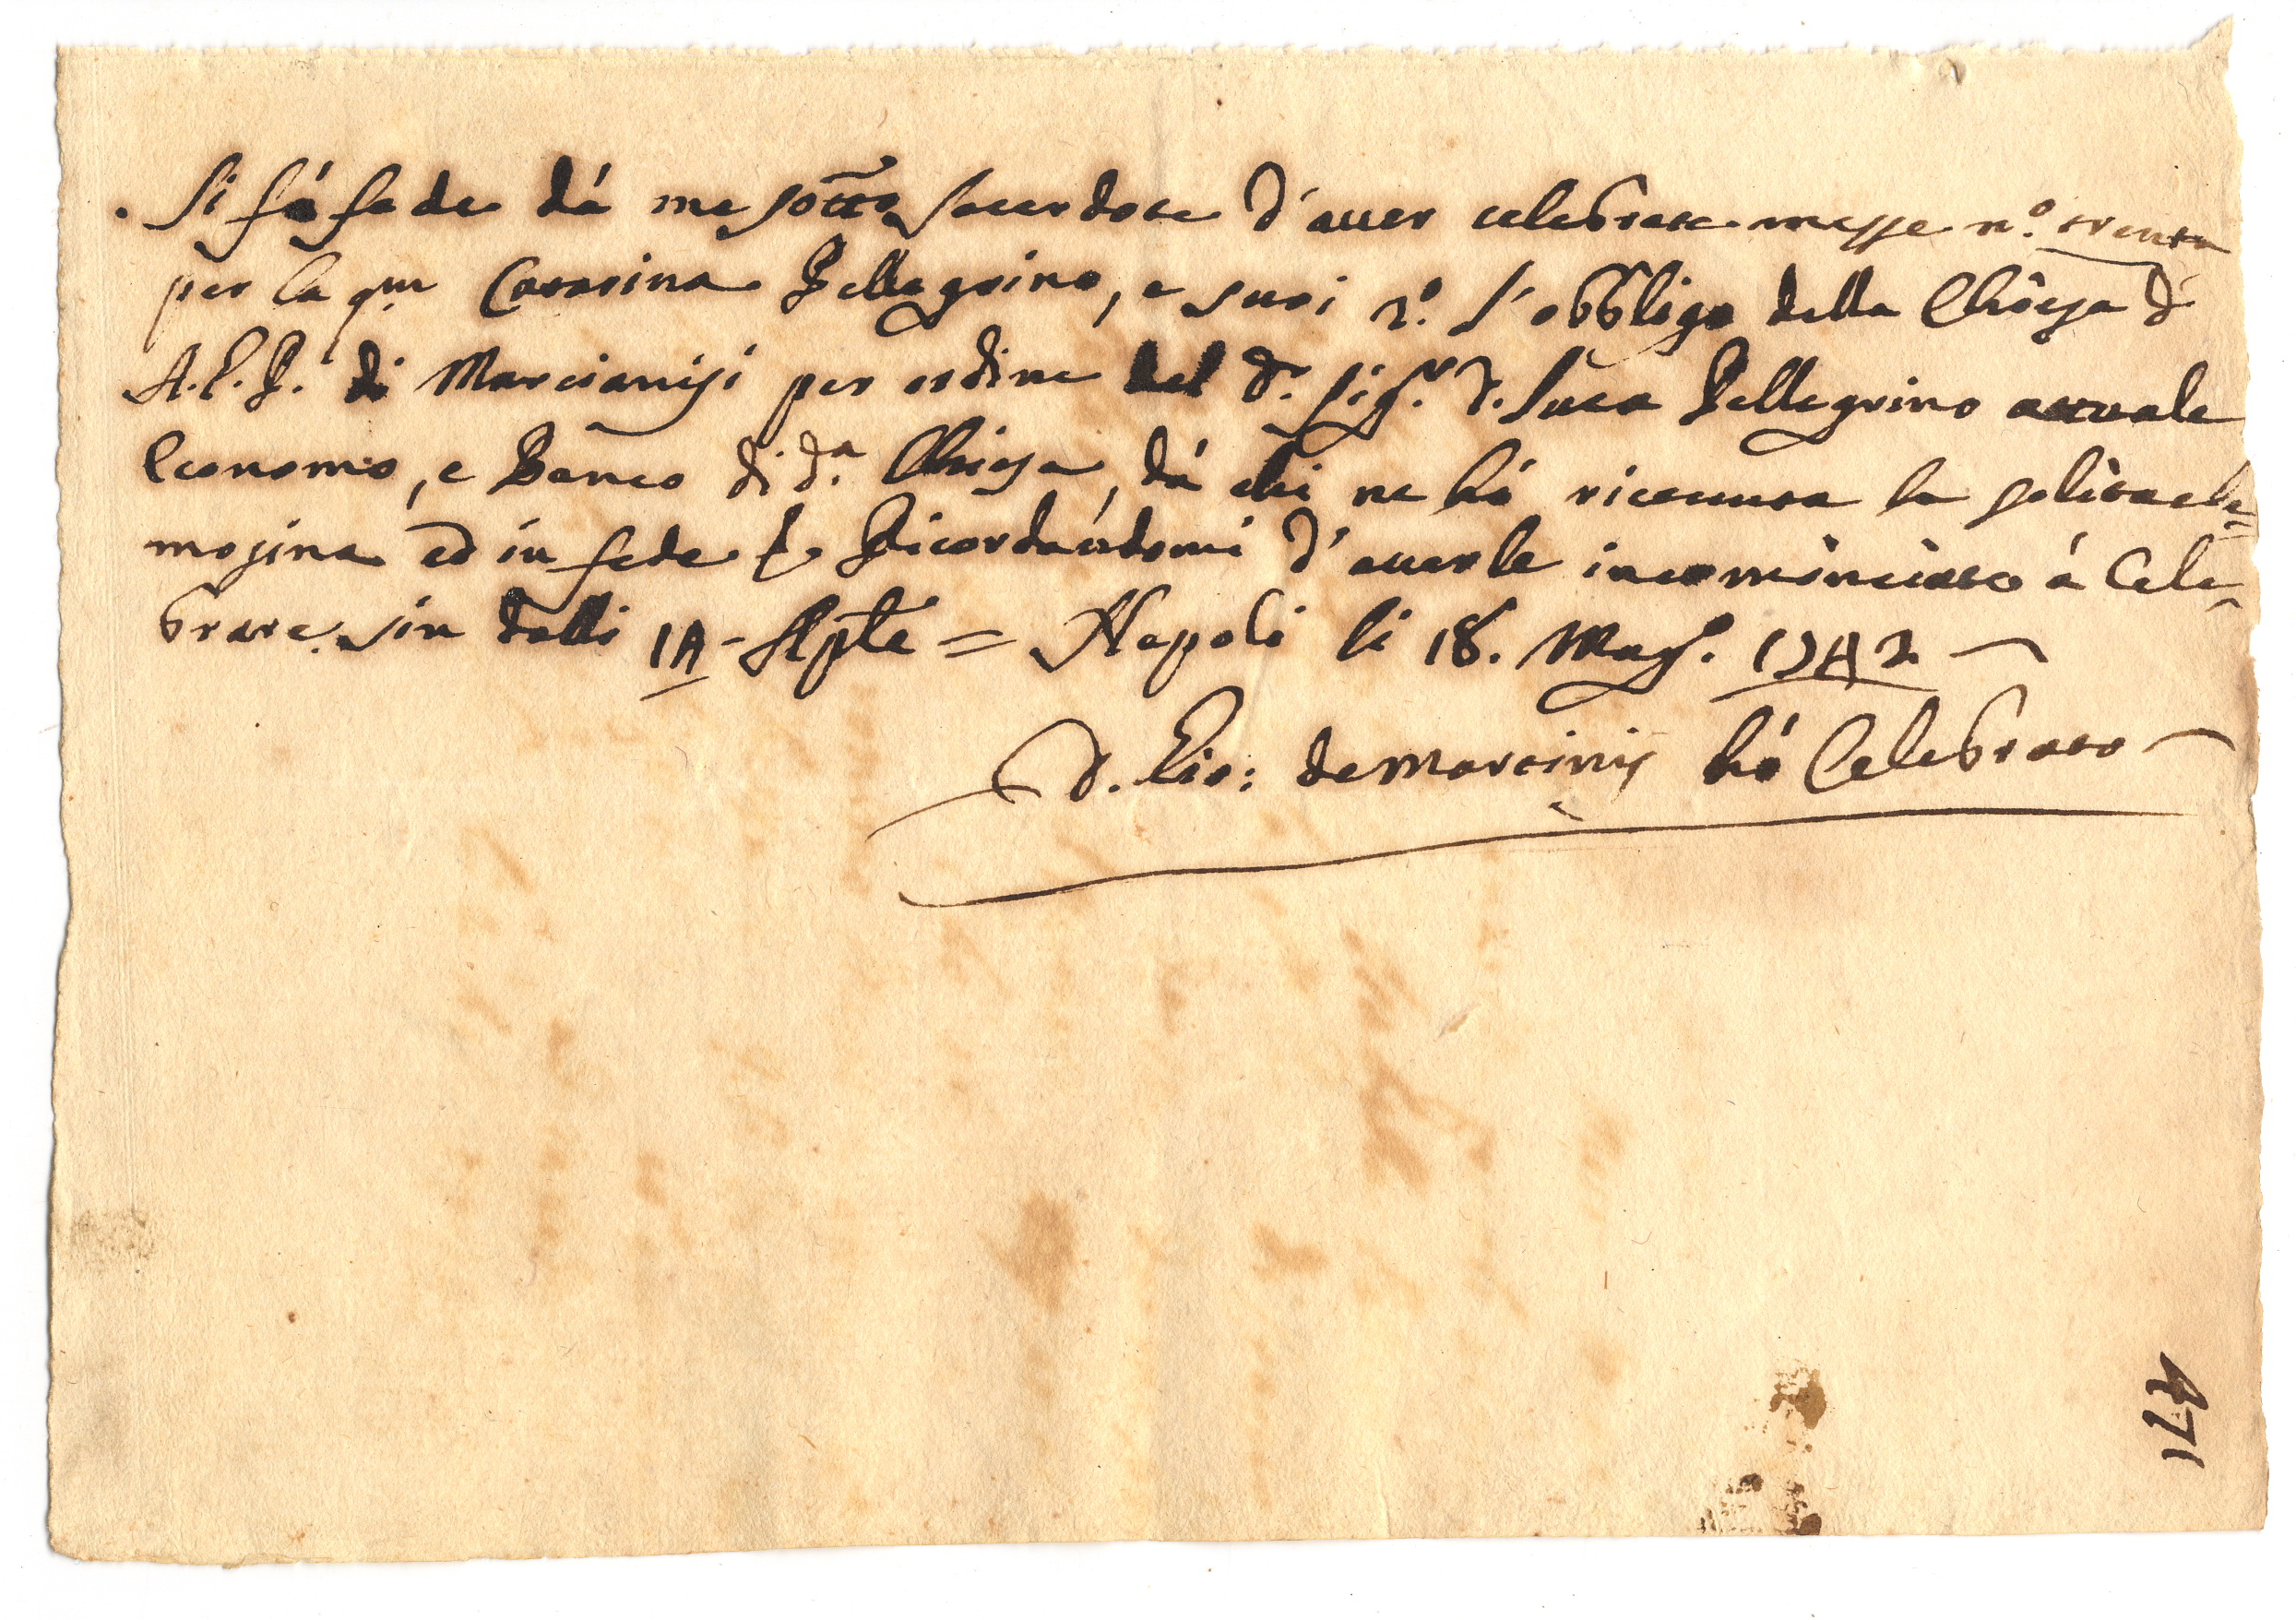 Si fà fede dà me sotto Sacerdote d'auer celebrate messe n.º trenta
per la qm Catarina Pellegrino, e suoi 2.º l'obbligo della Chiesa d'
A.G.P. di Marcianisi per ordine del D.r Sig.r D. Luca Pellegrino attuale
Economo, e Banco di d.a Chiesa, dà chi ne hà riceuuta la solita ele=
mosina ed in fede Ricordandomi d'auerle incominciato à Cele
brare sin dalli 14 - Aple = Napoli li 18. Mag.o 1742
D. Gio: de Martinis hà Celebrato
471